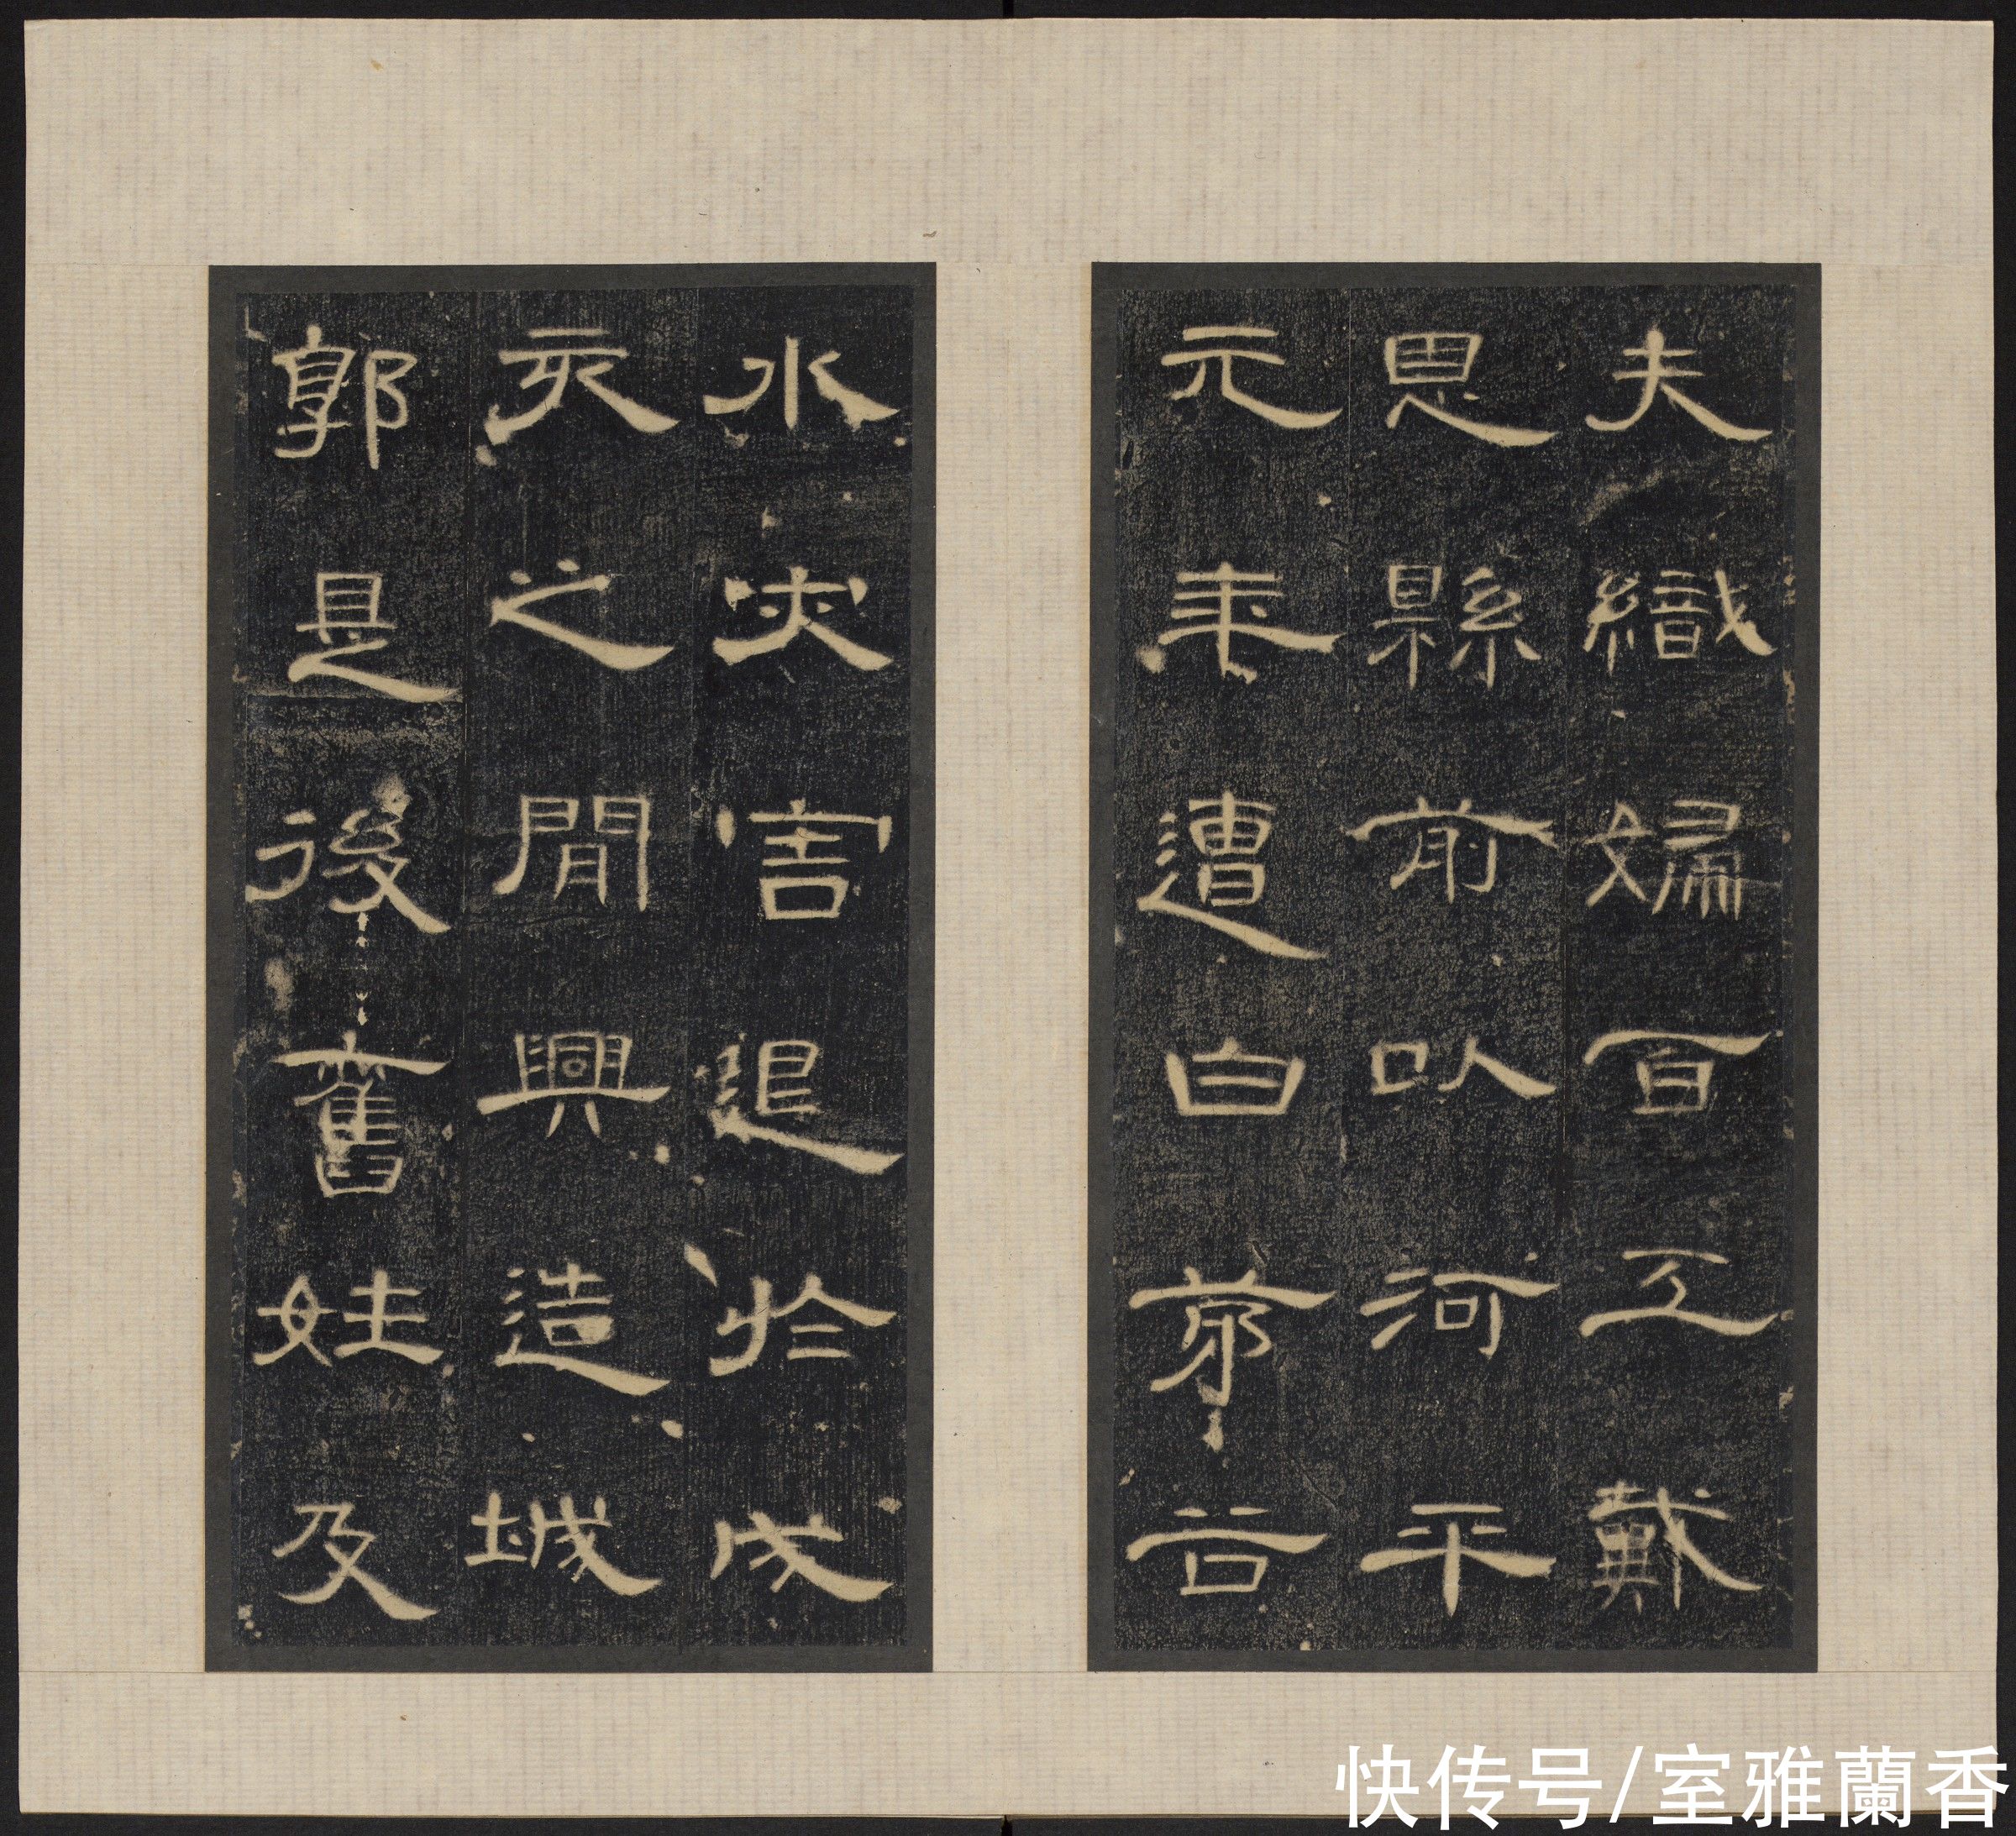 夫織婦百工戴
恩縣前以河平
元年遭白茅谷
水灾害退於戌
亥之間興造城
郭是後舊姓及
快传号/室雅蘭香